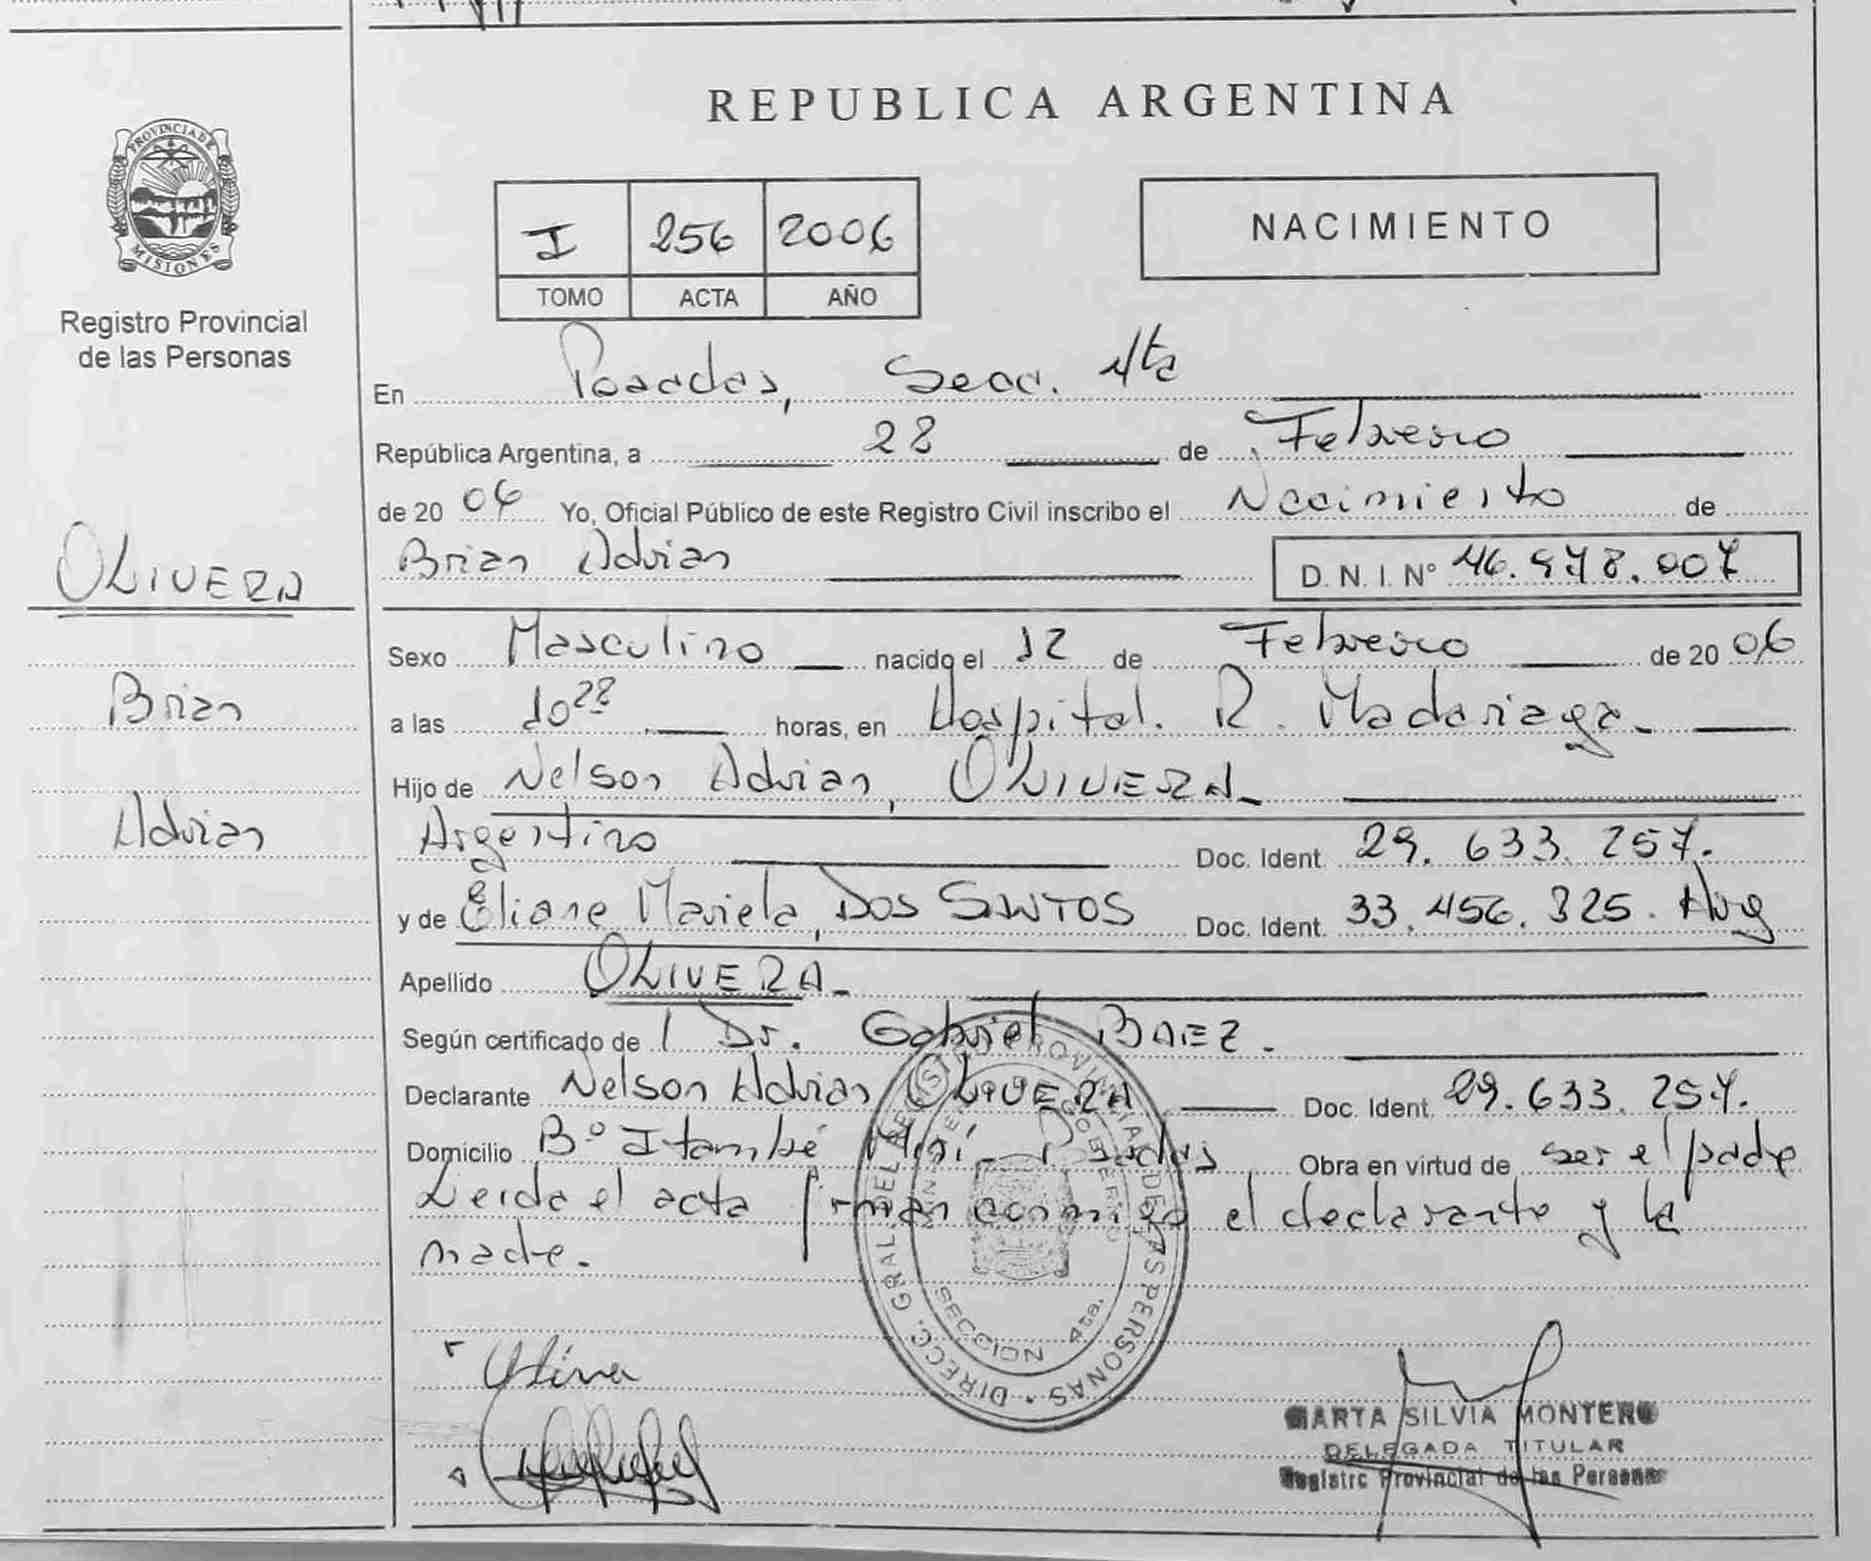 REPUBLICA ARGENTINA
PROVINCIA DE
MISIONES
Registro Provincial
de las Personas
I 256 2006
TOMO ACTA AÑO
NACIMIENTO
En Posadas, Secc. 4ta
República Argentina, a 28 de Febrero
de 20 06 Yo, Oficial Público de este Registro Civil inscribo el Nacimiento de
Brian Adrian D. N. I. Nº 46.978.007
OLIVERA
Brian
Adrian
Sexo Masculino nacido el 12 de Febrero de 20 06
a las 10 28 horas, en Hospital. R. Madariaga
Hijo de Nelson Adrian, OLIVERA
Argentino Doc. Ident 29. 633. 257.
y de Eliane Mariela, DOS SANTOS Doc. Ident. 33.456.325. Arg
Apellido OLIVERA
Según certificado de l Dr. Gabriel BAEZ.
Declarante Nelson Adrian OLIVERA Doc. Ident. 29.633.257.
Domicilio Bº Itambé Miní Posadas Obra en virtud de ser el padre
Leida el acta firman conmigo el declarante y la
madre.
SECCION 4ta.
MARTA SILVIA MONTERO
DELEGADA TITULAR
Registro Provincial de las Personas